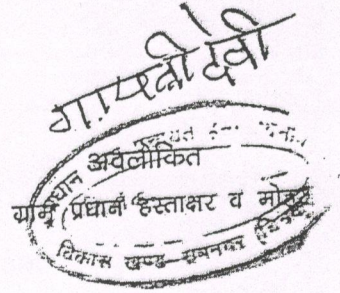 गायत्री देवी
अवलोकित
ग्राम प्रधान हस्ताक्षर व मोहर
विकास खण्ड